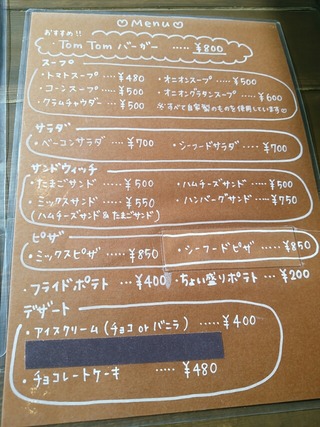 ♡Menu♡
おすすめ!!
・Tom Tom バーガー ····· ¥800
スープ
・トマトスープ ···· ¥480 ・オニオンスープ ···· ¥500
・コーンスープ ···· ¥500 ・オニオングラタンスープ ··· ¥600
・クラムチャウダー ··· ¥500 ※すべて自家製のものを使用しています♡
サラダ
・ベーコンサラダ ···· ¥700 ・シーフードサラダ ···· ¥700
サンドウィッチ
・たまごサンド ···· ¥500 ・ハムチーズサンド ···· ¥500
・ミックスサンド ···· ¥550 ・ハンバーグサンド ···· ¥750
(ハムチーズサンド & たまごサンド)
ピザ
・ミックスピザ ····· ¥850 ・シーフードピザ ····· ¥850
・フライドポテト ···· ¥400 ・ちょい盛りポテト ··· ¥200
デザート
・アイスクリーム (チョコ or バニラ) ····· ¥400
・チョコレートケーキ ····· ¥480